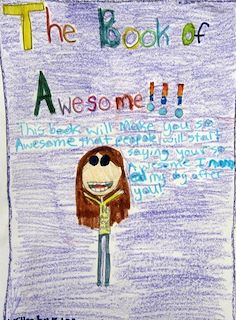 The Book of
Awesome!!!
This book will make you so
Awesome that people will start
saying your so
awesome I named
my dog after
you!